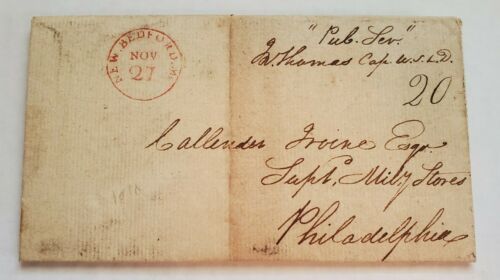 NEW BEDFORD. Ms
NOV
27
"Pub. Ser."
Thomas Cap U.S.L.D.
20
Callender Irvine Esqr
Supt. Mily Stores
Philadelphia